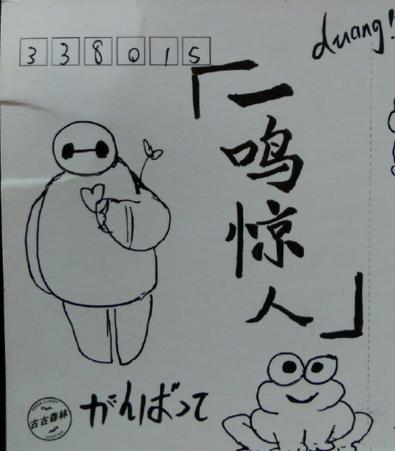 338015
duang!
「一鳴惊人」
がんばって
古古森林